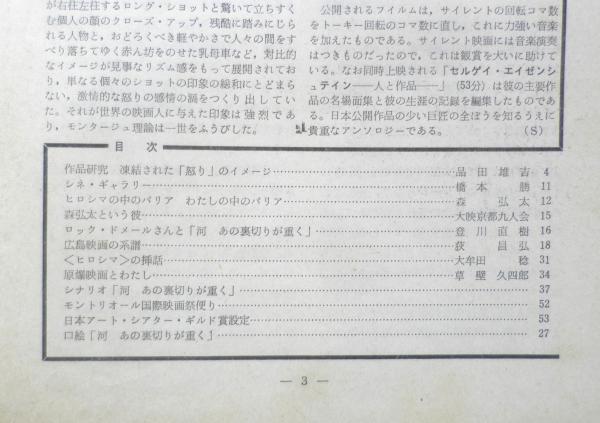 が右往左往するロング・ショットと驚いて立ちすく
む個人の顔のクローズ・アップ，残酷に踏みにじら
れる人物と，おどろくべき軽やかさで人々の間をす
べり落ちてゆく赤ん坊をのせた乳母車など，対比的
なイメージが見事なリズム感をもって展開されてお
り，単なる個々のショットの印象の総和にとどまら
ない，激情的な怒りの感情の渦をつくり出してい
た。それが世界の映画人に与えた印象は強烈であ
り，モンタージュ理論は一世をふうびした。
公開されるフイルムは，サイレントの回転コマ数
をトーキー回転のコマ数に直し，これに力強い音楽
を加えたものである。サイレント映画には音楽演奏
はつきものだったので，これは観賞を大いに助けて
いる。なお同時上映される「セルゲイ・エイゼンシ
ュテイン——人と作品——」（53分）は彼の主要作
品の名場面集と彼の生涯の記録を編集したものであ
る。日本公開作品の少い巨匠の全ぼうを知るうえに
貴重なアンソロジーである。（S）
目次
作品研究　凍結された「怒り」のイメージ……品田雄吉 4
シネ・ギャラリー……橋本勝 11
ヒロシマの中のバリア　わたしの中のバリア……森弘太 12
森弘太という彼……大映京都九人会 15
ロック・ドメールさんと「河　あの裏切りが重く」……登川直樹 16
広島映画の系譜……荻昌弘 18
＜ヒロシマ＞の挿話……大牟田稔 31
原爆映画とわたし……草壁久四郎 34
シナリオ「河　あの裏切りが重く」……37
モントリオール国際映画祭便り……52
日本アート・シアター・ギルド賞設定……53
口絵「河　あの裏切りが重く」……27
— 3 —